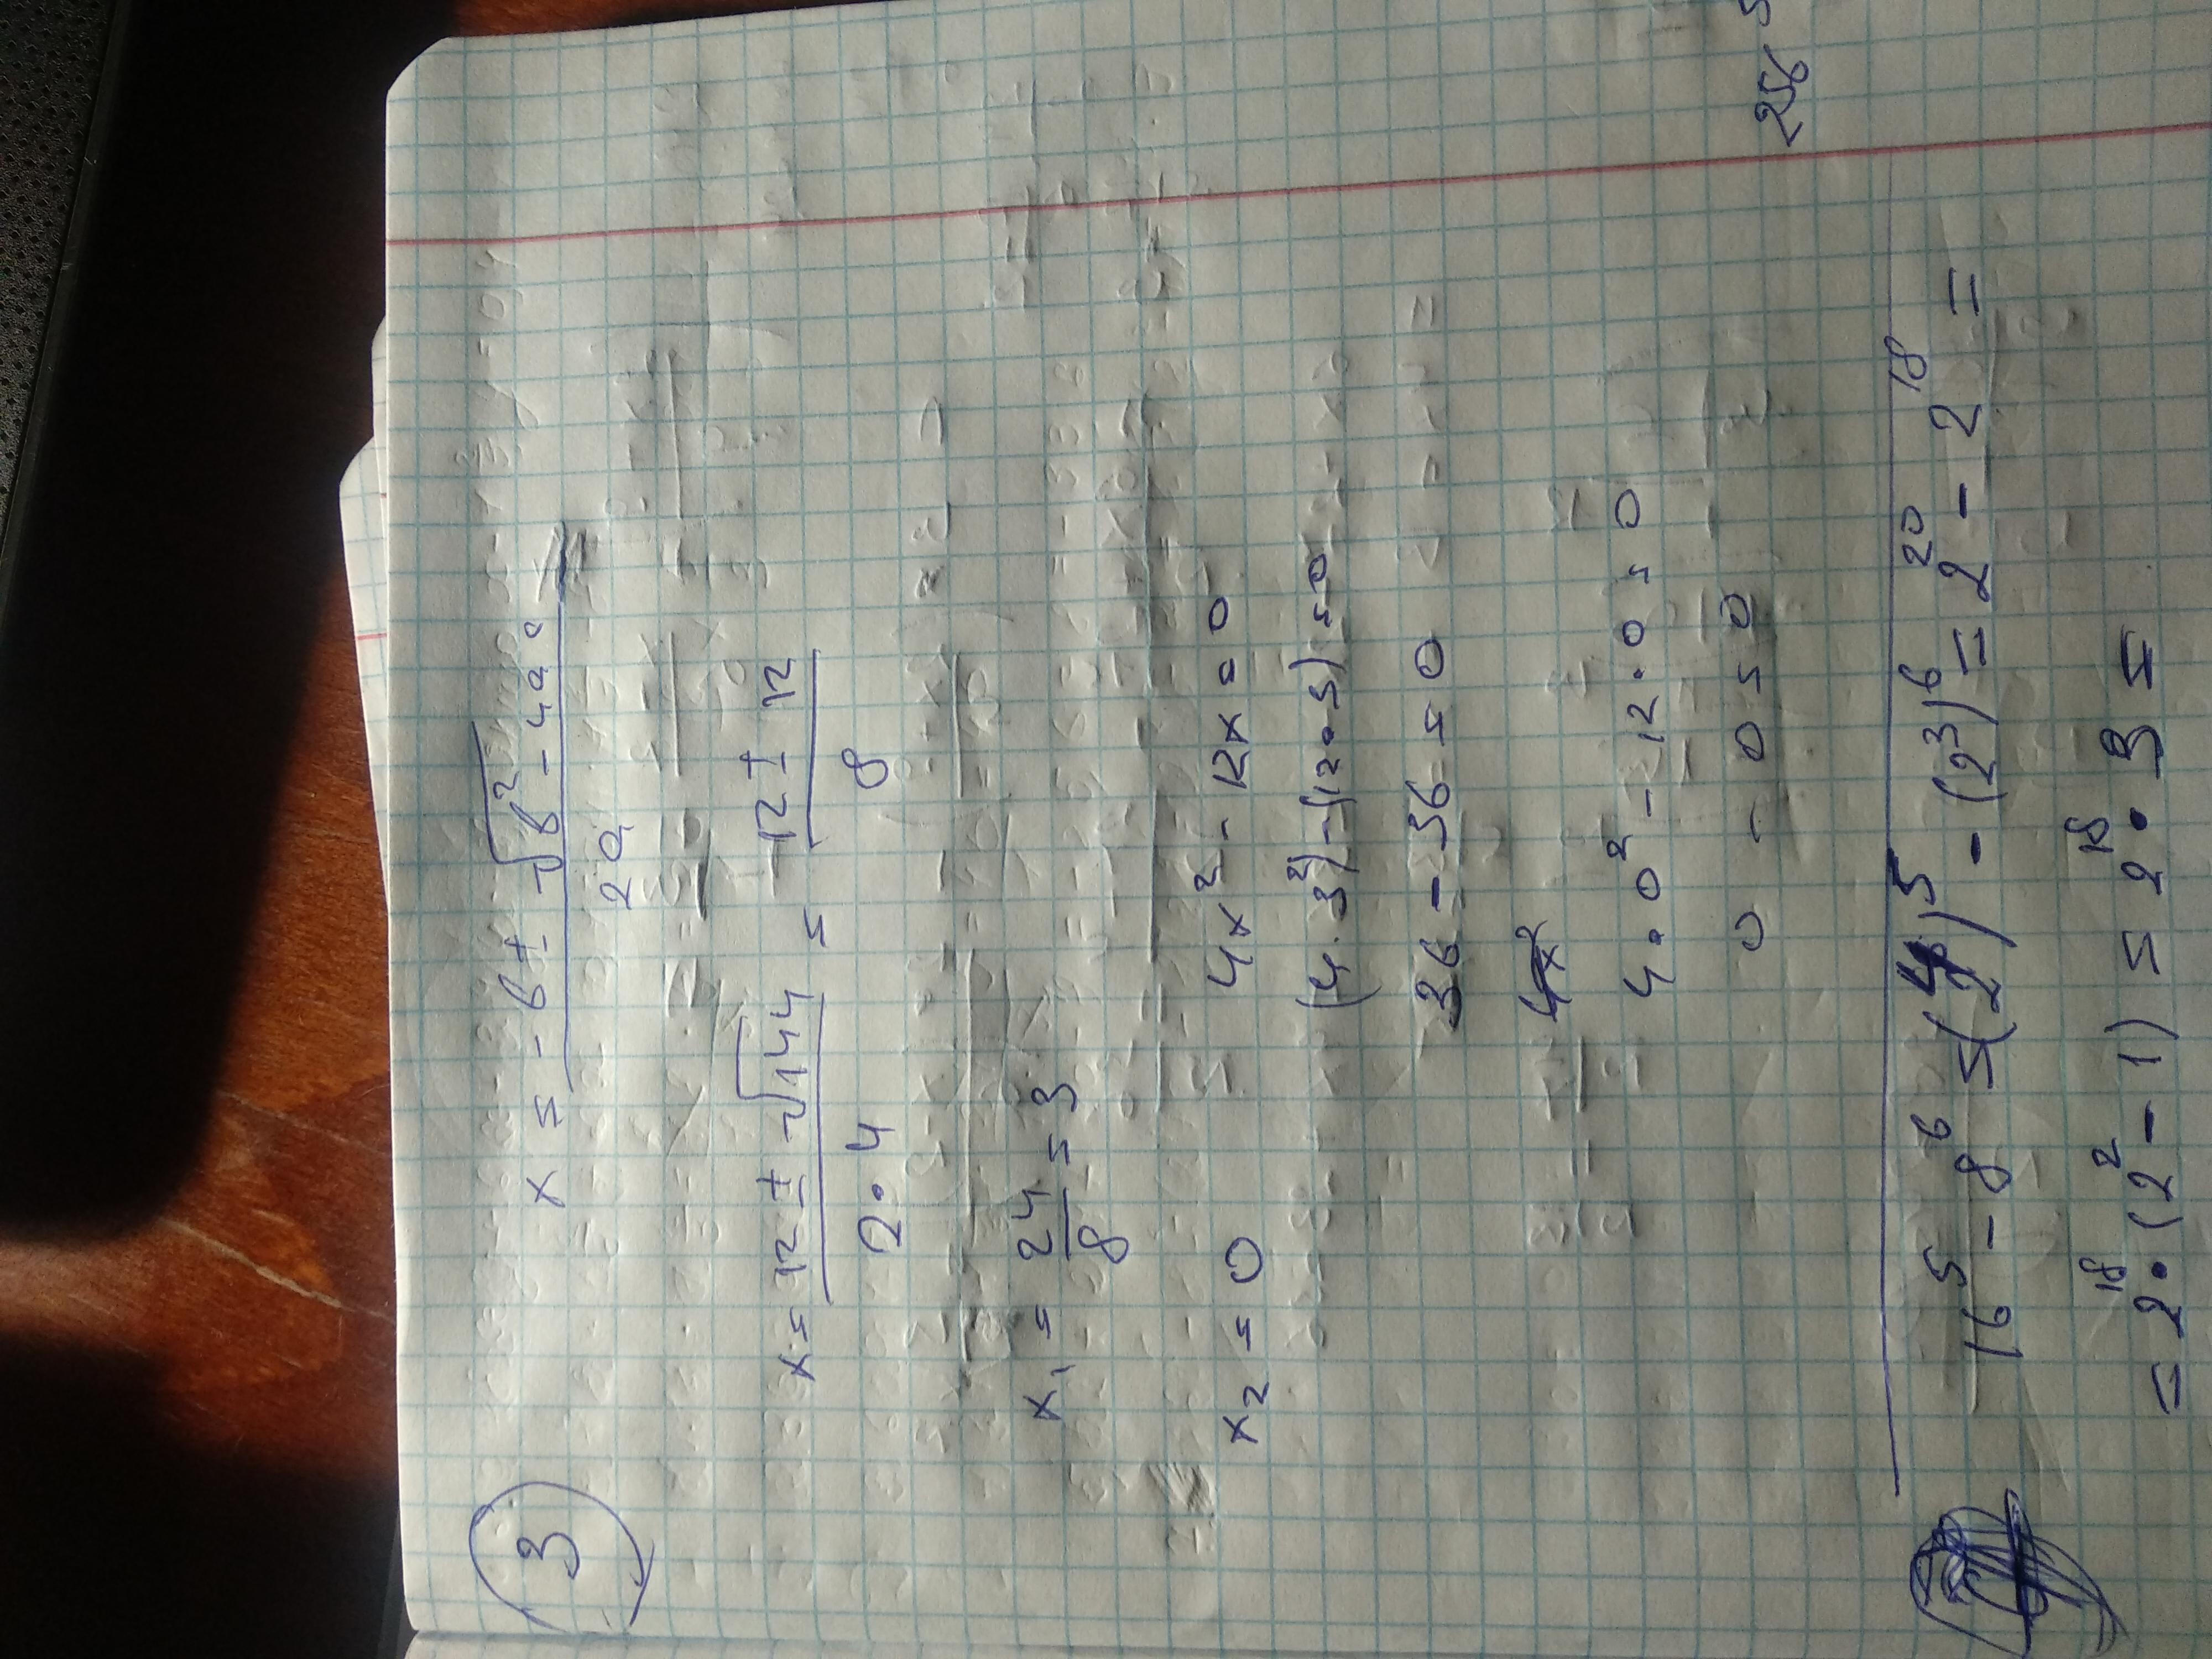 3
x = -b ± √b² - 4ac / 2a
x = 12 ± √144 / 2·4 = 12 ± 12 / 8
x₁ = 24/8 = 3
x₂ = 0
4x² - 12x = 0
(4·3²) - (12·3) = 0
36 - 36 = 0
4·0² - 12·0 = 0
0 - 0 = 0
256
16⁵ - 8⁶ = (2⁴)⁵ - (2³)⁶ = 2²⁰ - 2¹⁸ =
= 2¹⁸·(2² - 1) = 2¹⁸·3 =